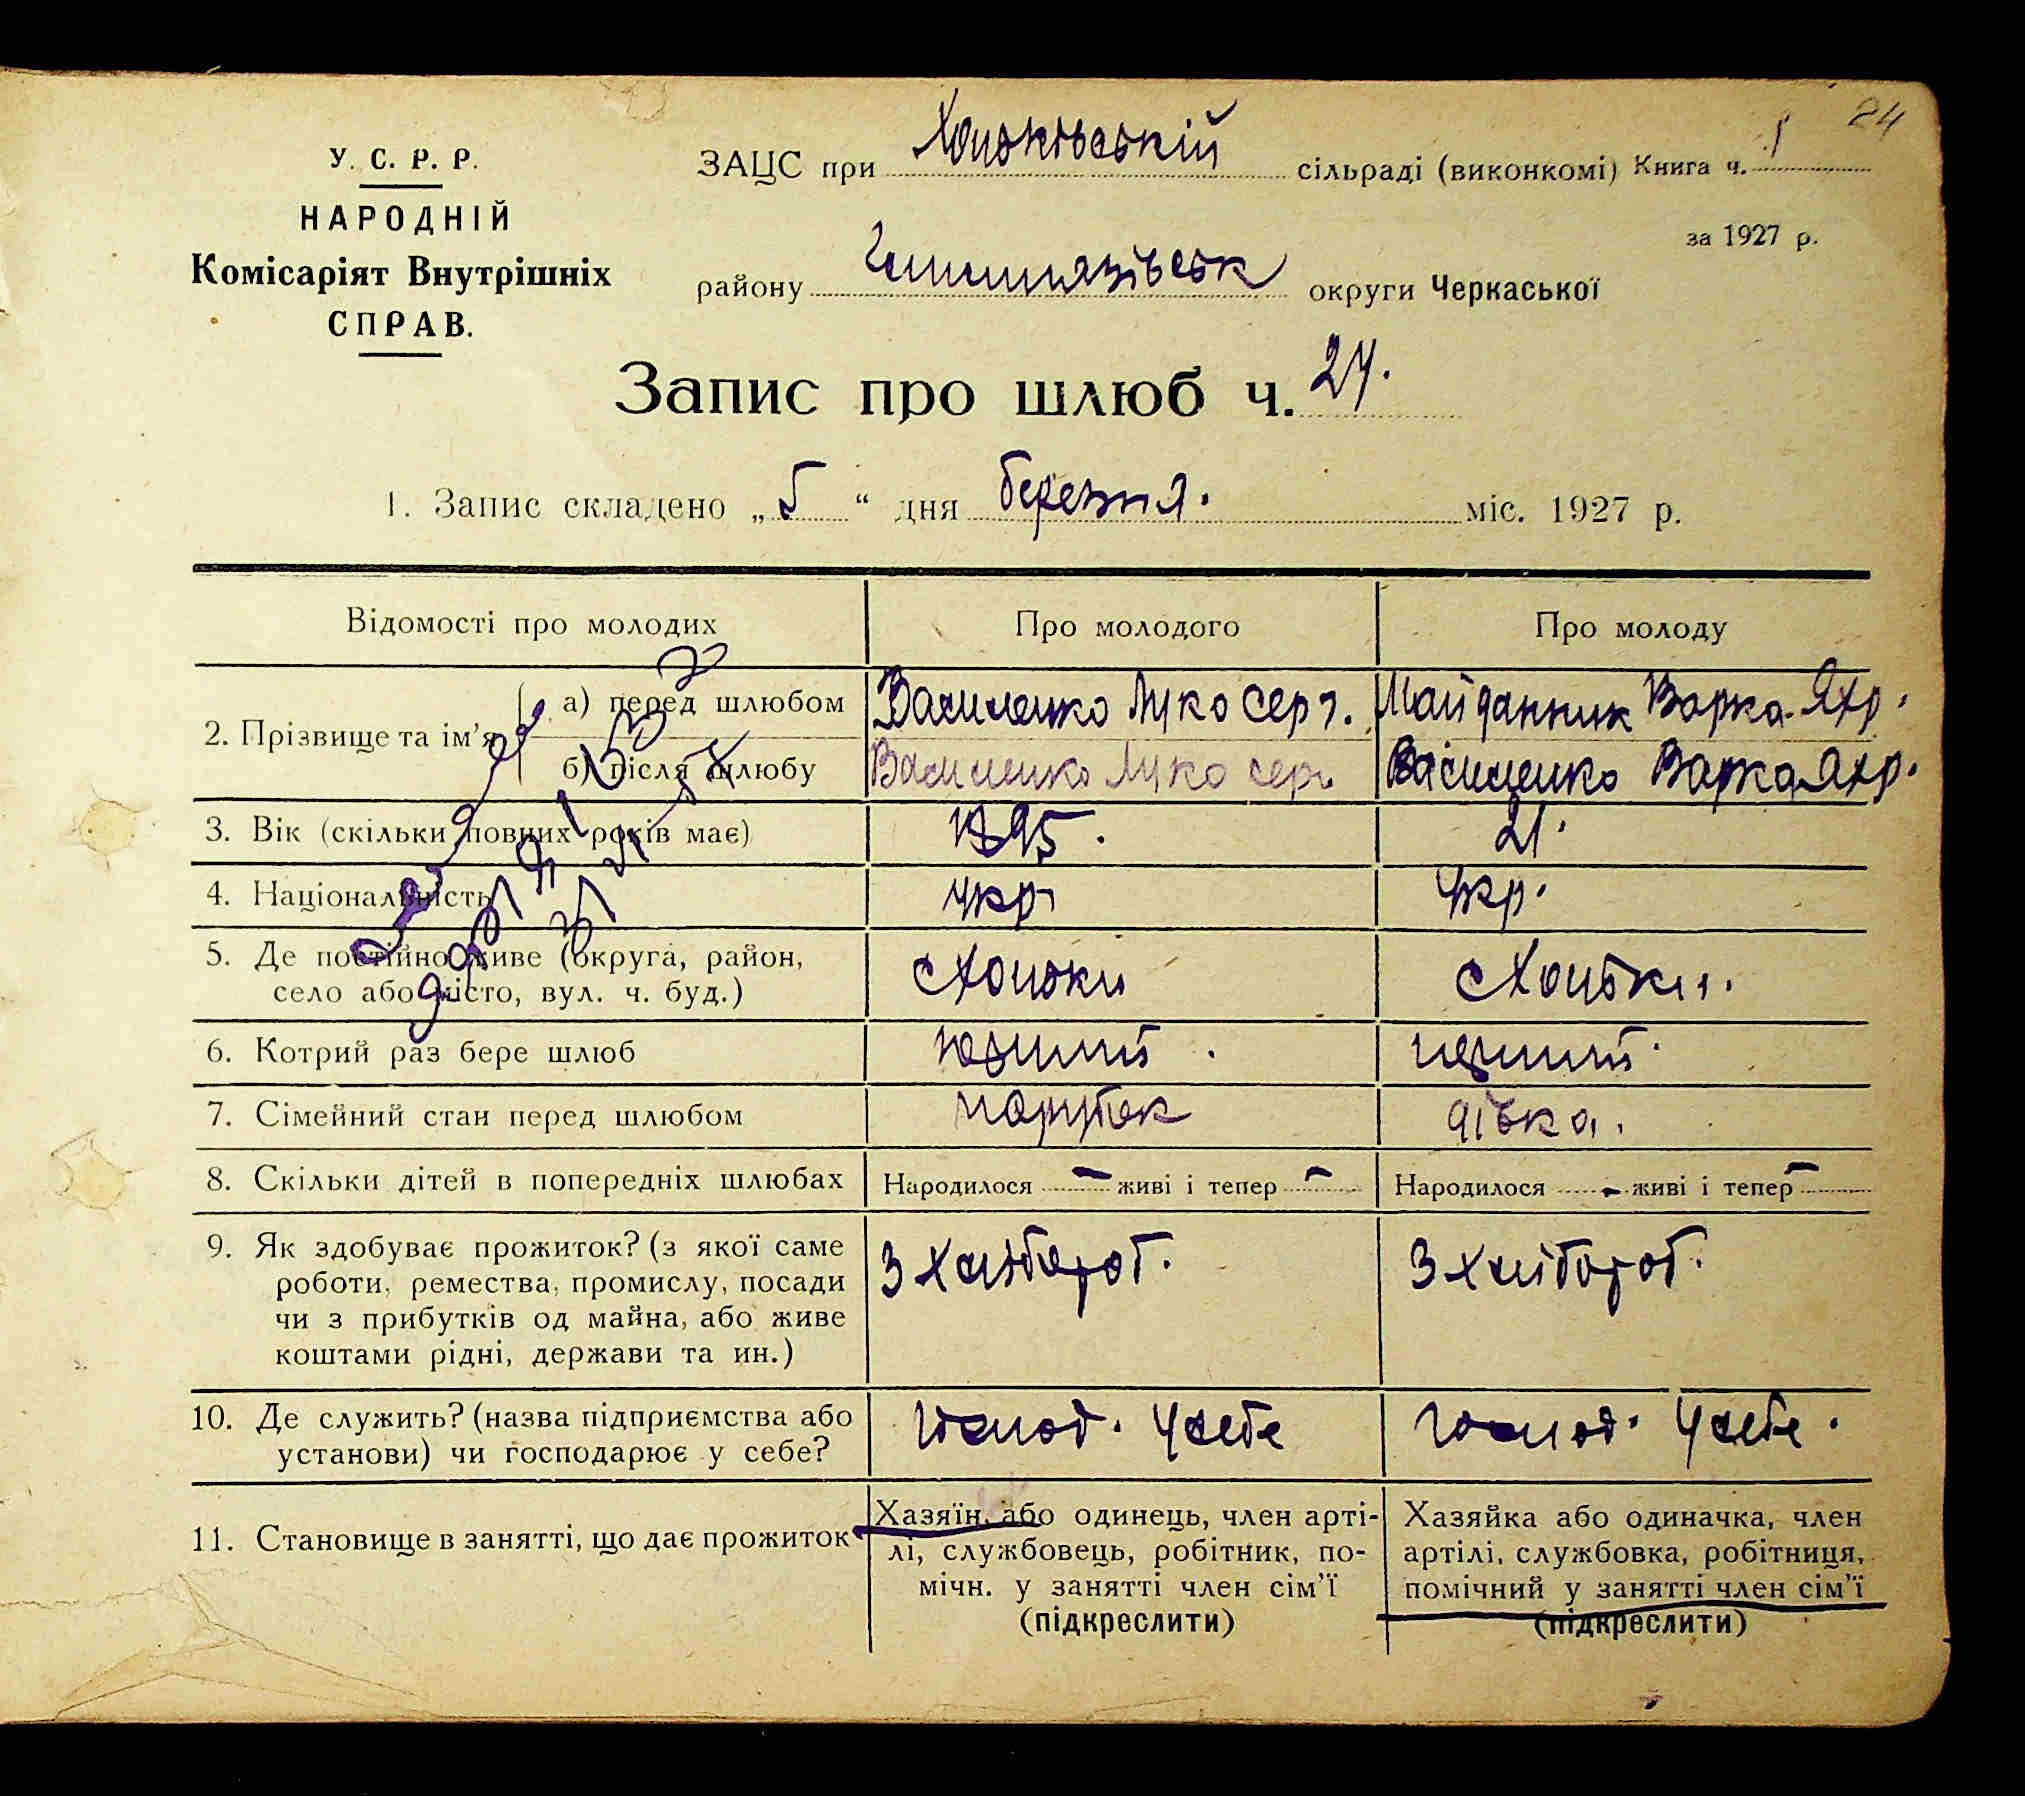 24
У. С. Р. Р.
НАРОДНІЙ
Комісаріят Внутрішніх
СПРАВ.
ЗАЦС при Хоцьківській сільраді (виконкомі) Книга ч. 1
за 1927 р.
району округи Черкаської
Запис про шлюб ч. 24.
1. Запис складено „5“ дня березня. міс. 1927 р.
Відомості про молодих Про молодого Про молоду
2. Прізвище та ім'я а) перед шлюбом Василенко Луко Серг. Майданник Варка Яхр.
б) після шлюбу Василенко Луко Серг. Василенко Варка Яхр.
3. Вік (скільки повних років має) 21.
4. Національність укр укр.
5. Де постійно живе (округа, район, село або місто, вул. ч. буд.) с Хоцьки с Хоцьки.
6. Котрий раз бере шлюб перший.
7. Сімейний стан перед шлюбом парубок дівка.
8. Скільки дітей в попередніх шлюбах Народилося - живі і тепер - Народилося - живі і тепер -
9. Як здобуває прожиток? (з якої саме роботи, ремества, промислу, посади чи з прибутків од майна, або живе коштами рідні, держави та ин.) З хлібороб. З хлібороб.
10. Де служить? (назва підприємства або установи) чи господарює у себе? господ. у себе господ. у себе.
11. Становище в занятті, що дає прожиток Хазяїн, або одинець, член артілі, службовець, робітник, помічн. у занятті член сім'ї (підкреслити) Хазяйка або одиначка, член артілі, службовка, робітниця, помічний у занятті член сім'ї (підкреслити)